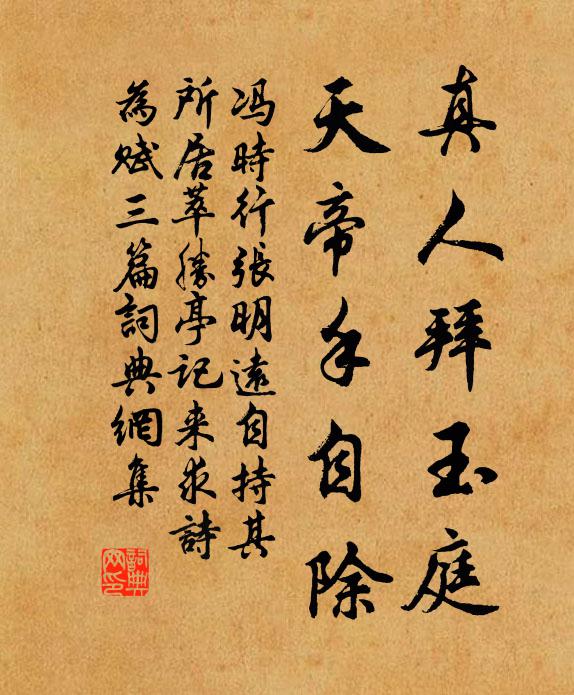 真人拜玉庭
天帝手自除
冯時行張明遠自持其
所居萃勝亭記来求詩
為賦三篇詞典網集
詞典网印